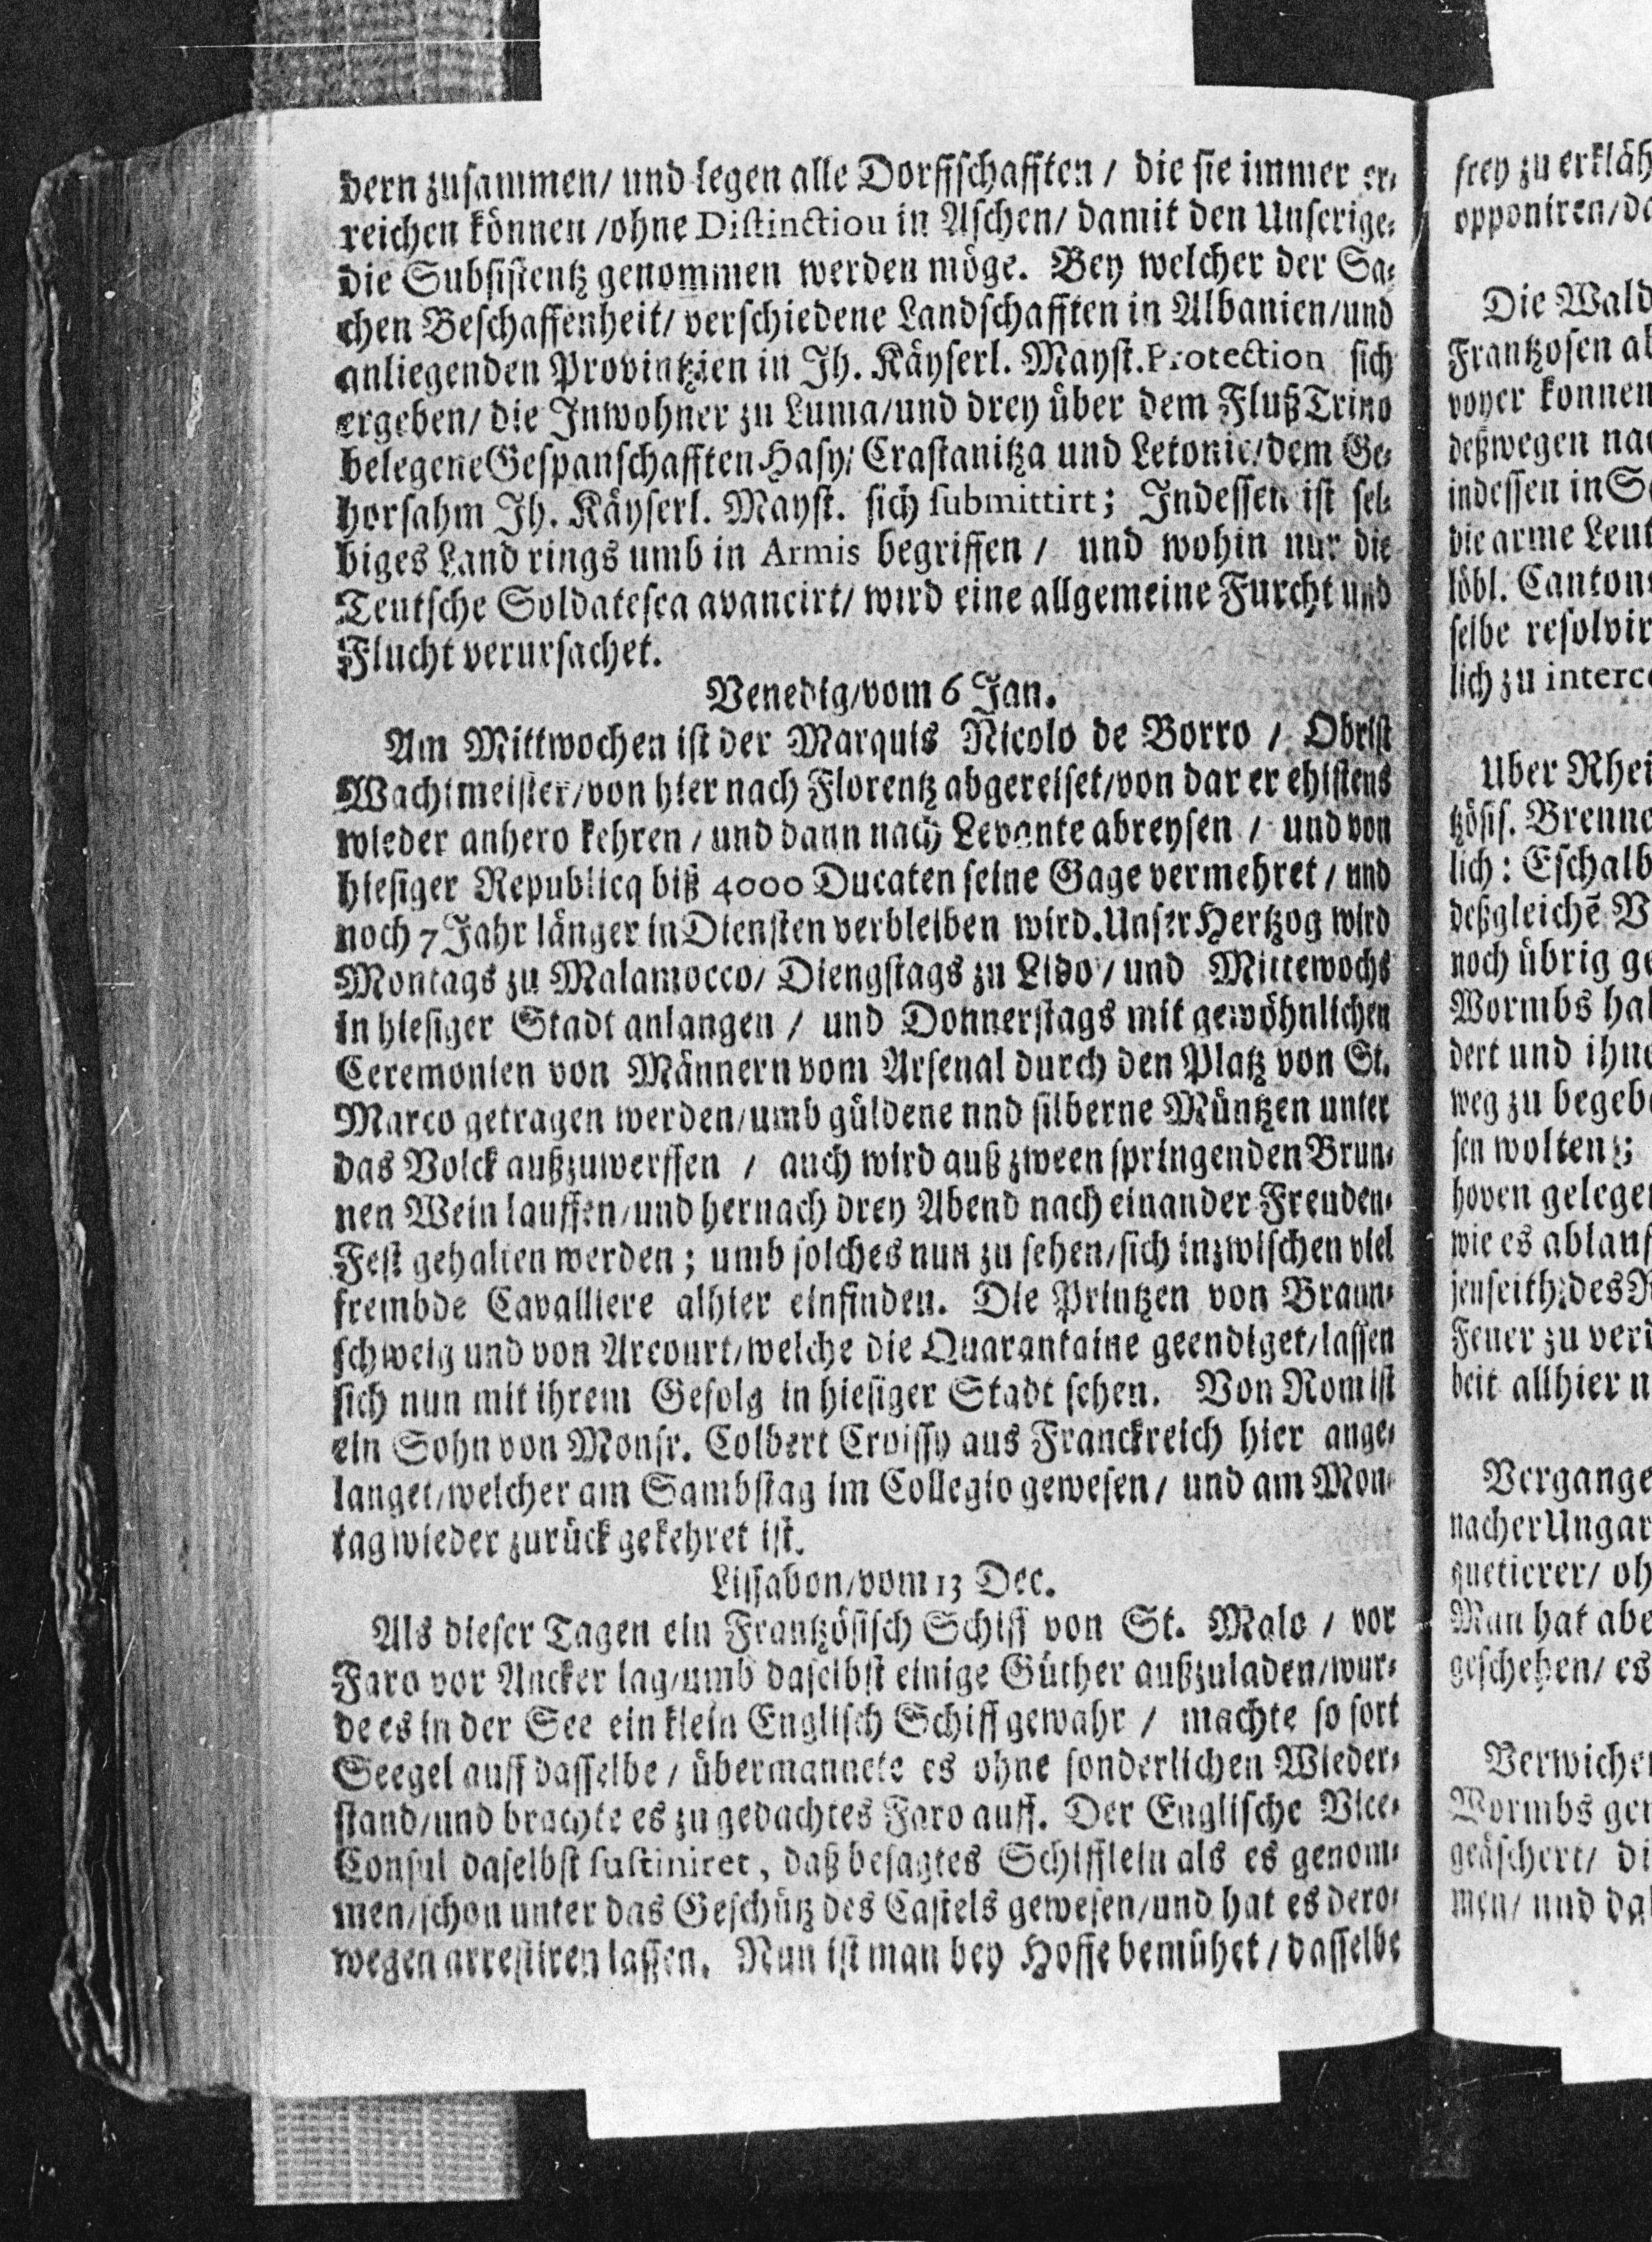 dern zusammen/ und legen alle Dorffschafften / die sie immer er-
reichen können /ohne Distinctiou in Aschen/ damit den Unserige-
die Subsistentz genommen werden möge. Bey welcher der Sa-
chen Beschaffenheit/ verschiedene Landschafften in Albanien/und
anliegenden Provintzien in Jh. Käyserl. Mayst. Protection sich
ergeben/ die Inwohner zu Luma/und drey über dem Fluß Trino
belegene Gespanschafften Hasy/ Crastanitza und Letonic/dem Ge-
horsahm Jh. Käyserl. Mayst. sich submittirt; Indessen ist sel-
biges Land rings umb in Armis begriffen / und wohin nur die
Teutsche Soldatesca avancirt/ wird eine allgemeine Furcht und
Flucht verursachet.
Venedig/vom 6 Jan.
Am Mittwochen ist der Marquis Nicolo de Borro / Obrist
Wachtmeister/von hier nach Florentz abgereiset/von dar er ehistens
wieder anhero kehren / und dann nach Levante abreysen / und von
hiesiger Republicq biß 4000 Ducaten seine Gage vermehret / und
noch 7 Jahr länger in Diensten verbleiben wird. Unser Hertzog wird
Montags zu Malamocco/ Diengstags zu Lido / und Mittewochs
in hiesiger Stadt anlangen / und Donnerstags mit gewöhnlichen
Ceremonien von Männern vom Arsenal durch den Platz von St.
Marco getragen werden/umb güldene nnd silberne Müntzen unter
das Volck außzuwerffen / auch wird auß zween springenden Brun-
nen Wein lauffen/und hernach drey Abend nach einander Freuden-
Fest gehalten werden; umb solches nun zu sehen/sich inzwischen viel
frembde Cavalliere alhier einfinden. Die Printzen von Braun-
schweig und von Arcourt/welche die Quarantaine geendiget/lassen
sich nun mit ihrem Gefolg in hiesiger Stadt sehen. Von Rom ist
ein Sohn von Monsr. Colbert Croissy aus Franckreich hier ange-
langet/welcher am Sambstag im Collegio gewesen / und am Mon-
tag wieder zurück gekehret ist.
Lissabon/vom 13 Dec.
Als dieser Tagen ein Frantzösisch Schiff von St. Malo / vor
Faro vor Ancker lag/umb daselbst einige Güther außzuladen/wur-
de es in der See ein klein Englisch Schiff gewahr / machte so fort
Seegel auff dasselbe / übermannete es ohne sonderlichen Wieder-
stand/und brachte es zu gedachtes Faro auff. Der Englische Vice-
Consul daselbst sustiniret, daß besagtes Schifflein als es genom-
men/schon unter das Geschütz des Castels gewesen/und hat es dero-
wegen arrestiren lassen. Nun ist man bey Hoffe bemühet / dasselbe
frey zu erkläh
opponiren/da
Die Wald
Frantzosen al
voyer konnen
deßwegen nac
indessen in S
die arme Leut
löbl. Canton
selbe resolvir
lich zu interc
Uber Rhei
tzösis. Brenne
lich: Eschalb
deßgleichē V
noch übrig ge
Wormbs hal
dert und ihne
weg zu begeb
sen wolten;
hoven gelegen
wie es ablauf
jenseith des R
Feuer zu verd
beit allhier n
Vergange
nacher Ungar
quetierer/ oh
Man hat abe
geschehen/ es
Verwichen
Wormbs gen
geäschert/ di
men/ und dal